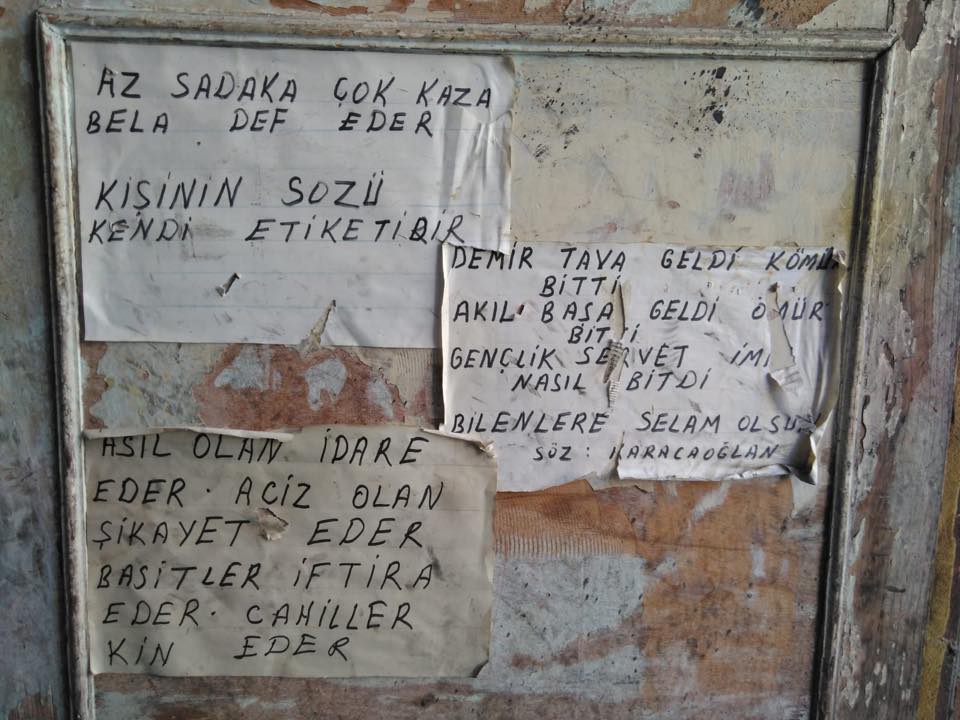 AZ SADAKA ÇOK KAZA
BELA DEF EDER
KİŞİNİN SOZÜ
KENDİ ETİKETİDİR
DEMİR TAVA GELDİ KÖMÜR
BİTTİ
AKIL BAŞA GELDİ ÖMÜR
BİTTİ
GENÇLİK SERVET İMİ
NASIL BİTDİ
BİLENLERE SELAM OLSUN
SÖZ : KARACAOĞLAN
ASIL OLAN İDARE
EDER. ACİZ OLAN
ŞİKAYET EDER
BASİTLER İFTİRA
EDER. CAHİLLER
KİN EDER